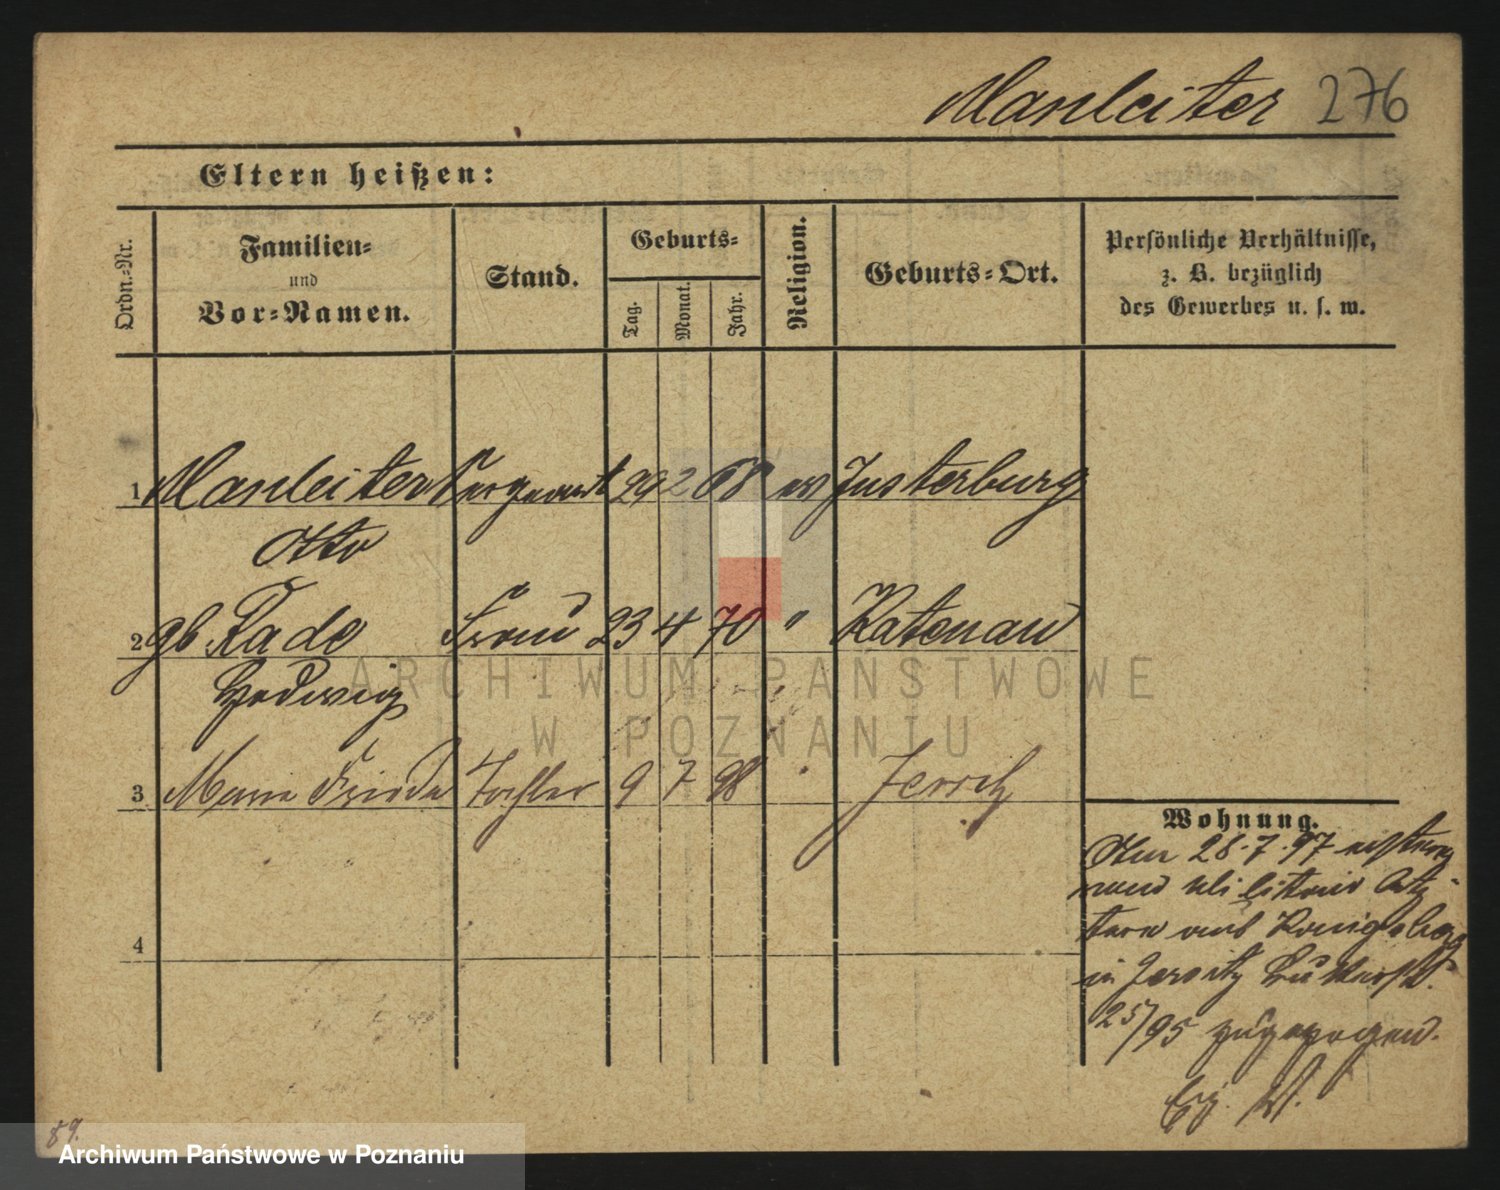 Manleiter 276
Eltern heißen:
Ordn.-Nr.
Familien-
und
Vor-Namen.
Stand.
Geburts-
Tag.
Monat.
Jahr.
Religion.
Geburts-Ort.
Persönliche Verhältnisse,
z. B. bezüglich
des Gewerbes u. s. w.
1 Manleiter Sergeant 29 2 68 ev Insterburg
Otto
2 gb Rade Frau 23 4 70 " Katenau
Hedwig
3 Frieda Tochter 9 7 98 " Jersitz
4
Wohnung.
Am 28.7.97
aus Königsberg
in Jersitz
25/95 zugezogen.
89.
ARCHIWUM PAŃSTWOWE
W POZNANIU
Archiwum Państwowe w Poznaniu